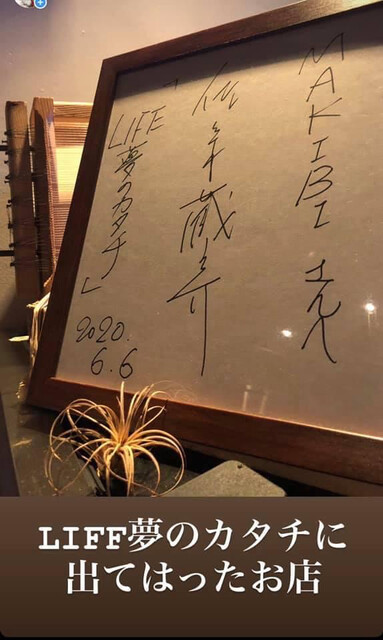 MAKIBI さんへ
佐々木蔵之介
「LIFE 夢のカタチ」
2020.
6.6
LIFF夢のカタチに
出てはったお店